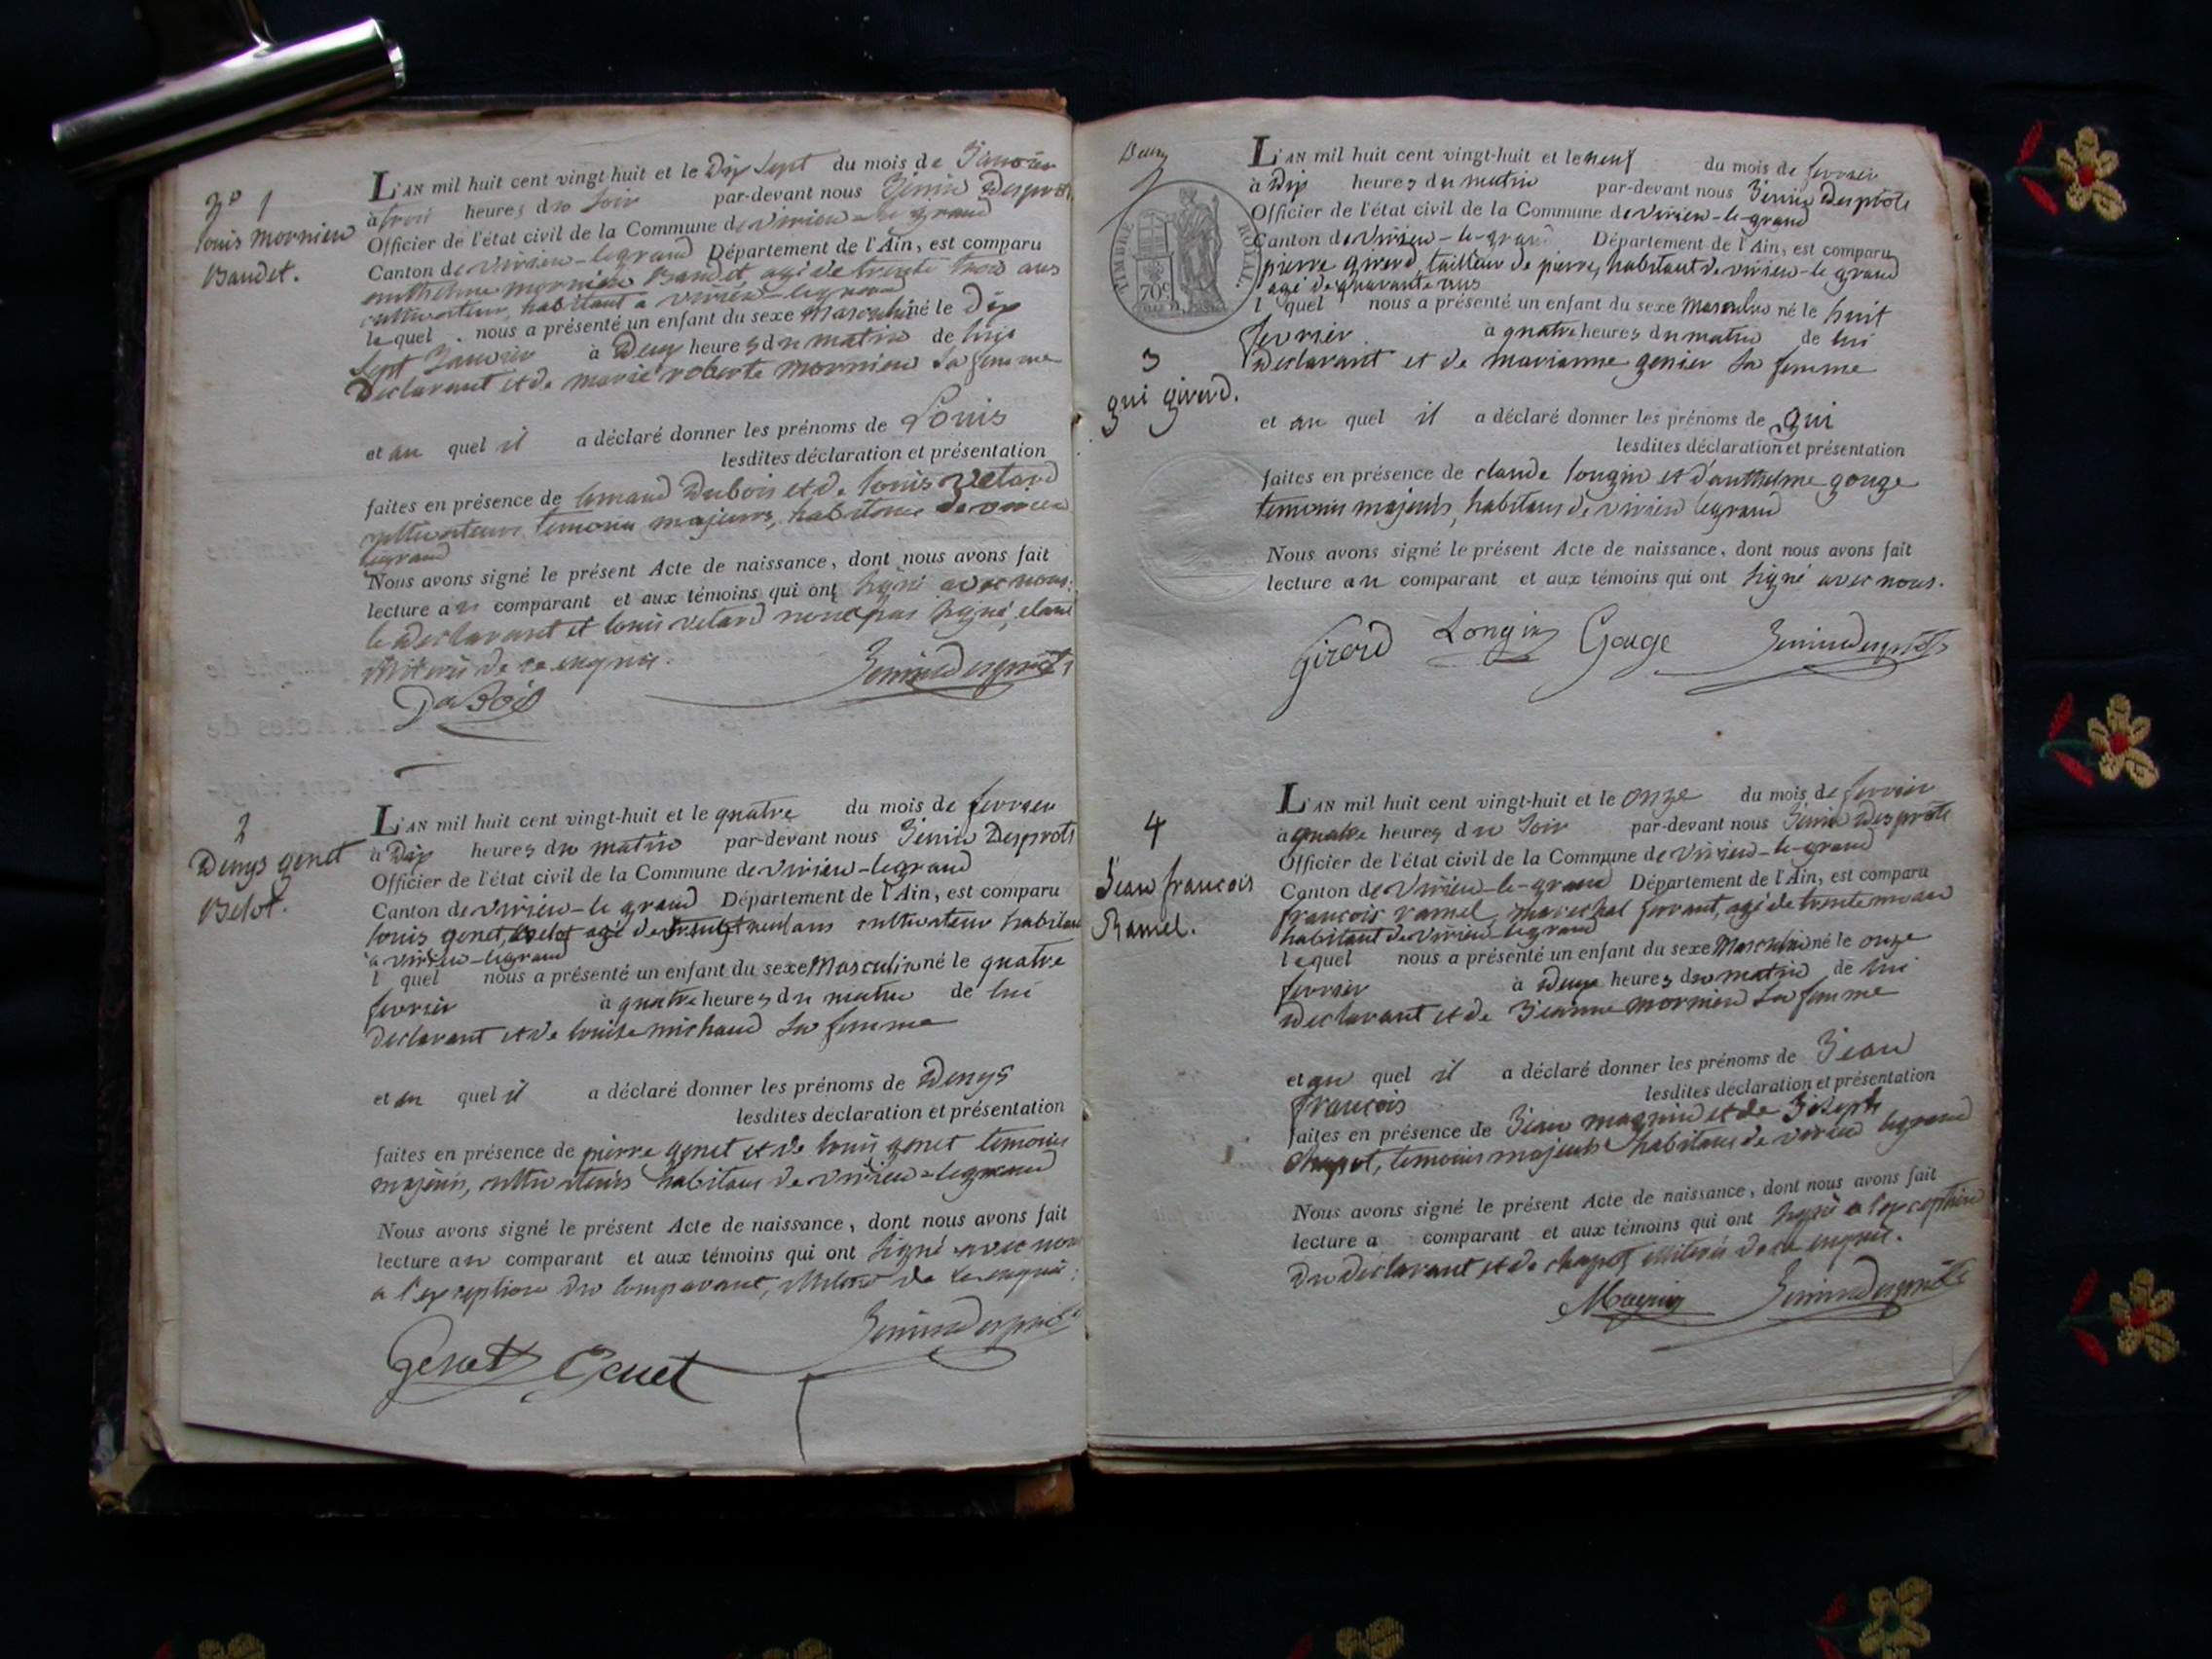 N° 1
Louis mornieu
Baudet.
L'AN mil huit cent vingt-huit et le Dix Sept du mois de Janvier
à trois heures du soir par-devant nous Jenin Desprots
Officier de l'état civil de la Commune de virieu-le grand
Canton de virieu-legrand Département de l'Ain, est comparu
anthelme mornieu Baudet agé de trente trois ans
cultivateur, habitant a virieu-legrand
lequel nous a présenté un enfant du sexe Masculin né le Dix
Sept Janvier à Deux heures du matin de lui
Declarant et de marie roberte mornieu sa femme
et au quel il a déclaré donner les prénoms de Louis
lesdites déclaration et présentation
faites en présence de Dubois et de louis vetard
cultivateurs temoins majeurs, habitans de virieu
legrand
Nous avons signé le présent Acte de naissance, dont nous avons fait
lecture au comparant et aux témoins qui ont signé avec nous.
le Declarant et louis vetard n'ont pas signé, etant
illiterés de ce enquis.
DuBois Jenin Desprots
2
Denys genet
Belot.
L'AN mil huit cent vingt-huit et le quatre du mois de fevrier
à Dix heures du matin par-devant nous Jenin Desprots
Officier de l'état civil de la Commune de virieu-legrand
Canton de virieu-le grand Département de l'Ain, est comparu
louis genet, Belot agé de neuf ans cultivateur habitant
a virieu-legrand
l quel nous a présenté un enfant du sexe Masculin né le quatre
fevrier à quatre heures du matin de lui
declarant et de louise michaud sa femme
et au quel il a déclaré donner les prénoms de Denys
lesdites déclaration et présentation
faites en présence de pierre genet et de louis genet temoins
majeurs, cultivateurs habitans de virieu-legrand
Nous avons signé le présent Acte de naissance, dont nous avons fait
lecture au comparant et aux témoins qui ont signé avec nous
a l'exception du comparant, illiteré de ce enquis.
Genet Genet Jenin Desprots
TIMBRE ROYAL
70c
3
gui girerd.
L'AN mil huit cent vingt-huit et le neuf du mois de fevrier
à Dix heures du matin par-devant nous Jenin Desprots
Officier de l'état civil de la Commune de virieu-le-grand
Canton de Virieu-le-grand Département de l'Ain, est comparu
pierre girerd, tailleur de pierre, habitant de virieu-le grand
agé de quarante ans
l quel nous a présenté un enfant du sexe masculin né le huit
fevrier à quatre heures du matin de lui
Declarant et de marianne genier sa femme
et au quel il a déclaré donner les prénoms de gui
lesdites déclaration et présentation
faites en présence de claude longin et d'anthelme gouge
temoins majeurs, habitans de virieu legrand
Nous avons signé le présent Acte de naissance, dont nous avons fait
lecture au comparant et aux témoins qui ont signé avec nous.
Girerd Longin Gouge Jenin Desprots
4
Jean francois
Ramel.
L'AN mil huit cent vingt-huit et le onze du mois de fevrier
à quatre heures du soir par-devant nous Jenin Desprots
Officier de l'état civil de la Commune de Virieu-le-grand
Canton de Virieu-le-grand Département de l'Ain, est comparu
francois ramel, marechal ferrant, agé de trente
habitant de virieu-legrand
lequel nous a présenté un enfant du sexe Masculin né le onze
fevrier à deux heures du matin de lui
declarant et de Jeanne mornieu sa femme
et au quel il a déclaré donner les prénoms de Jean
lesdites déclaration et présentation
francois
faites en présence de Jean magnin et de Joseph
chapot, temoins majeurs habitans de virieu legrand
Nous avons signé le présent Acte de naissance, dont nous avons fait
lecture a comparant et aux témoins qui ont signé a l'exception
du declarant et de chapot illiterés de ce enquis.
Magnin Jenin Desprots